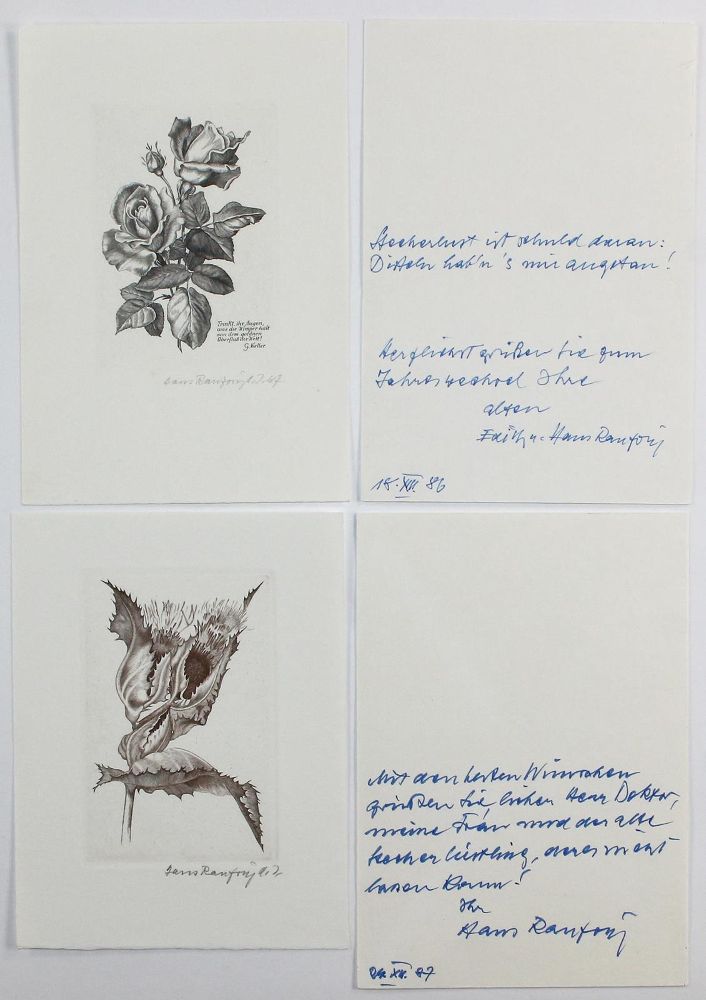 Trinkt, ihr Augen,
was die Wimper hält
von dem goldnen
Überfluß der Welt!
G. Keller
Hans Ranzoni d. J. 87
Stecherlust ist schuld daran:
Disteln hab'n's mir angetan!
Herzlichst grüßen Sie zum
Jahreswechsel Ihre
alten
Edith u. Hans Ranzoni
15. XII. 86
Hans Ranzoni d. J.
Mit den besten Wünschen
grüßen Sie, lieber Herr Doktor,
meine Frau und der alte
Stecherlüstling, der es nicht
lassen kann!
Ihr
Hans Ranzoni
XII. 87